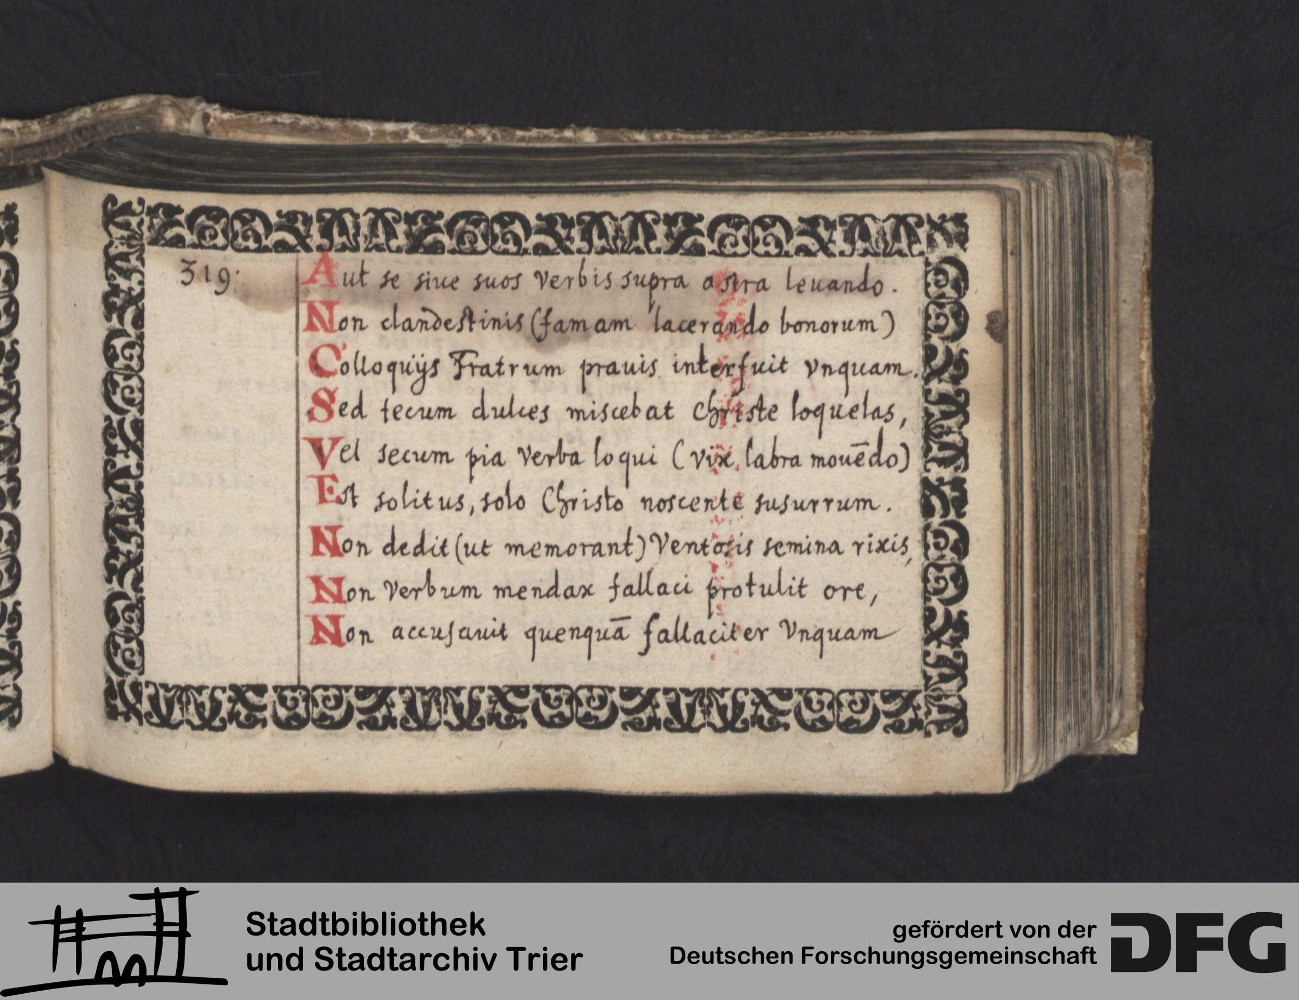 319.
Aut se siue suos verbis supra astra leuando.
Non clandestinis (famam lacerando bonorum)
Colloquijs Fratrum prauis interfuit vnquam.
Sed tecum dulces miscebat Christe loquelas,
Vel secum pia verba loqui (vix labra mouẽdo)
Est solitus, solo Christo noscente susurrum.
Non dedit (ut memorant) Ventosis semina rixis,
Non Verbum mendax fallaci protulit ore,
Non accusauit quenquã fallaciter Vnquam
Stadtbibliothek
und Stadtarchiv Trier
gefördert von der
Deutschen Forschungsgemeinschaft
DFG